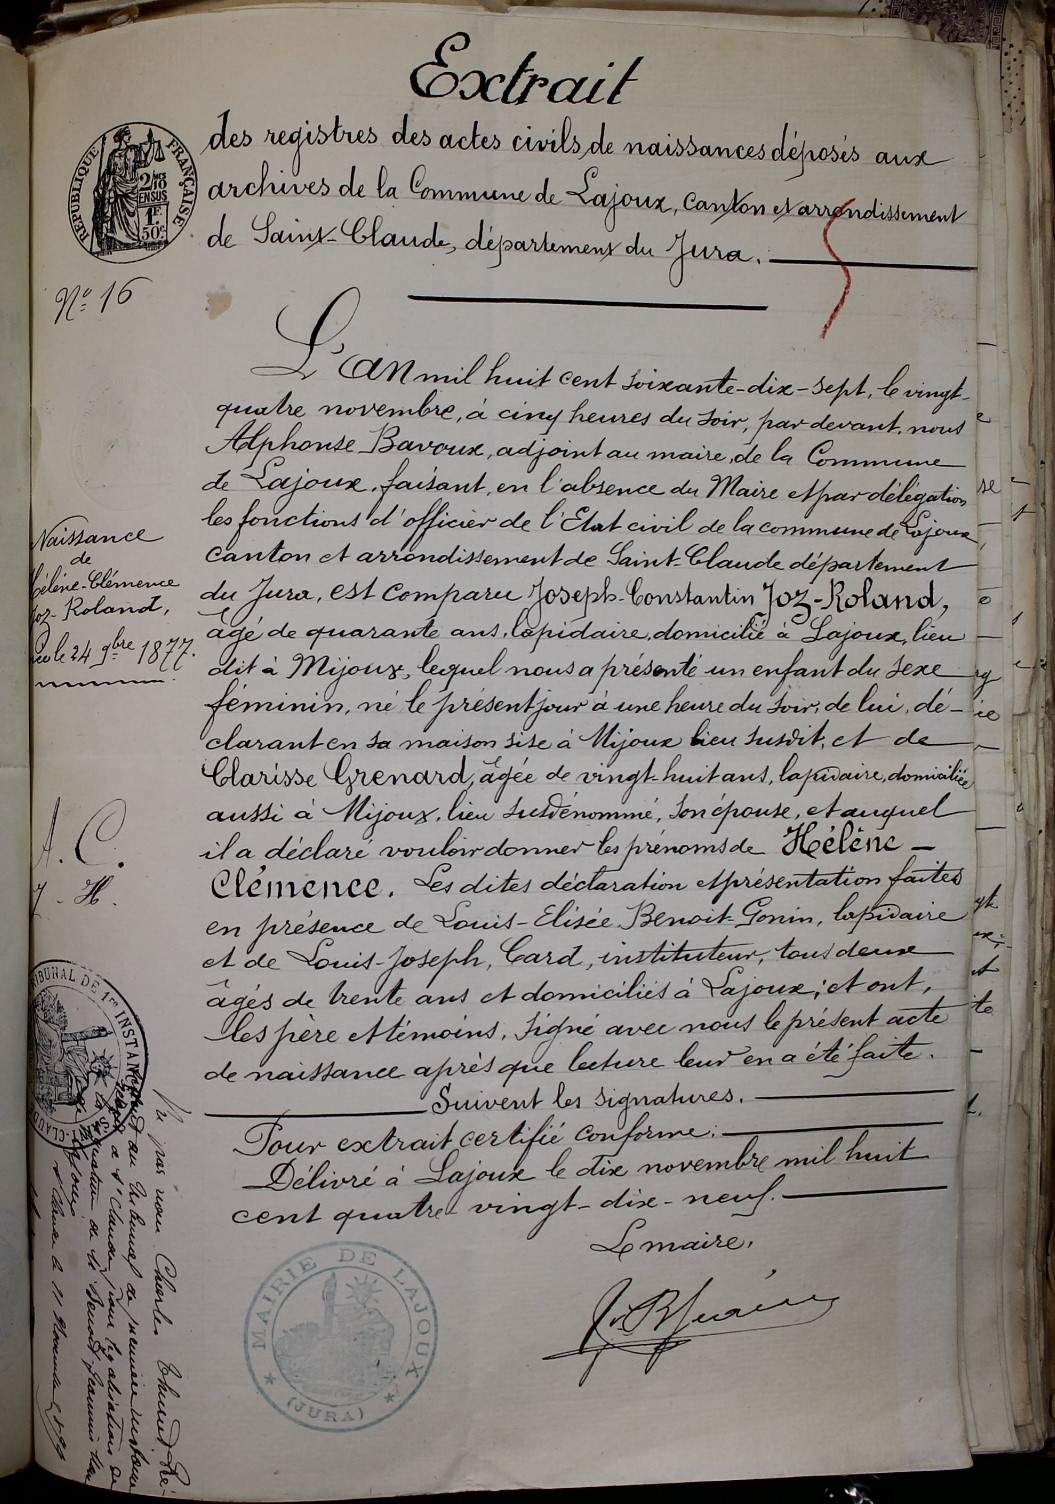 Extrait
des registres des actes civils de naissances déposés aux
archives de la Commune de Lajoux, canton et arrondissement
de Saint-Claude, département du Jura.
RÉPUBLIQUE FRANÇAISE
2/10
EN SUS
1F
50c
No 16
L'an mil huit cent soixante-dix-sept, le vingt-
quatre novembre, à cinq heures du soir, par devant nous
Alphonse Bavoux, adjoint au maire de la Commune
de Lajoux, faisant, en l'absence du Maire et par délégation
les fonctions d'officier de l'Etat civil de la commune de Lajoux
canton et arrondissement de Saint-Claude département
du Jura, est comparu Joseph-Constantin Joz-Roland,
âgé de quarante ans, lapidaire, domicilié à Lajoux, lieu
dit à Mijoux, lequel nous a présenté un enfant du sexe
féminin, né le présent jour à une heure du soir, de lui, dé-
clarant en sa maison sise à Mijoux lieu susdit, et de
Clarisse Grenard, âgée de vingt-huit ans, lapidaire, domiciliée
aussi à Mijoux, lieu susdénommé, son épouse, et auquel
il a déclaré vouloir donner les prénoms de Hélène-
Clémence. Les dites déclaration et présentation faites
en présence de Louis-Elisée Benoit-Gonin, lapidaire
et de Louis-Joseph, Card, instituteur, tous deux
âgés de trente ans et domiciliés à Lajoux; et ont,
les père et témoins, signé avec nous le présent acte
de naissance après que lecture leur en a été faite.
Suivent les signatures.
Pour extrait certifié conforme:
Délivré à Lajoux le dix novembre mil huit
cent quatre-vingt-dix-neuf.
Le maire,
MAIRIE DE LAJOUX
(JURA)
Naissance
de
Hélène-Clémence
Joz-Roland,
née le 24 9bre 1877.
A. C.
J. H.
TRIBUNAL DE 1re INSTANCE
Vu par nous Charles
au tribunal de première instance
St Claude, pour légalisation de
la signature de Mr
Lajoux
St Claude le 11 Novembre 1899